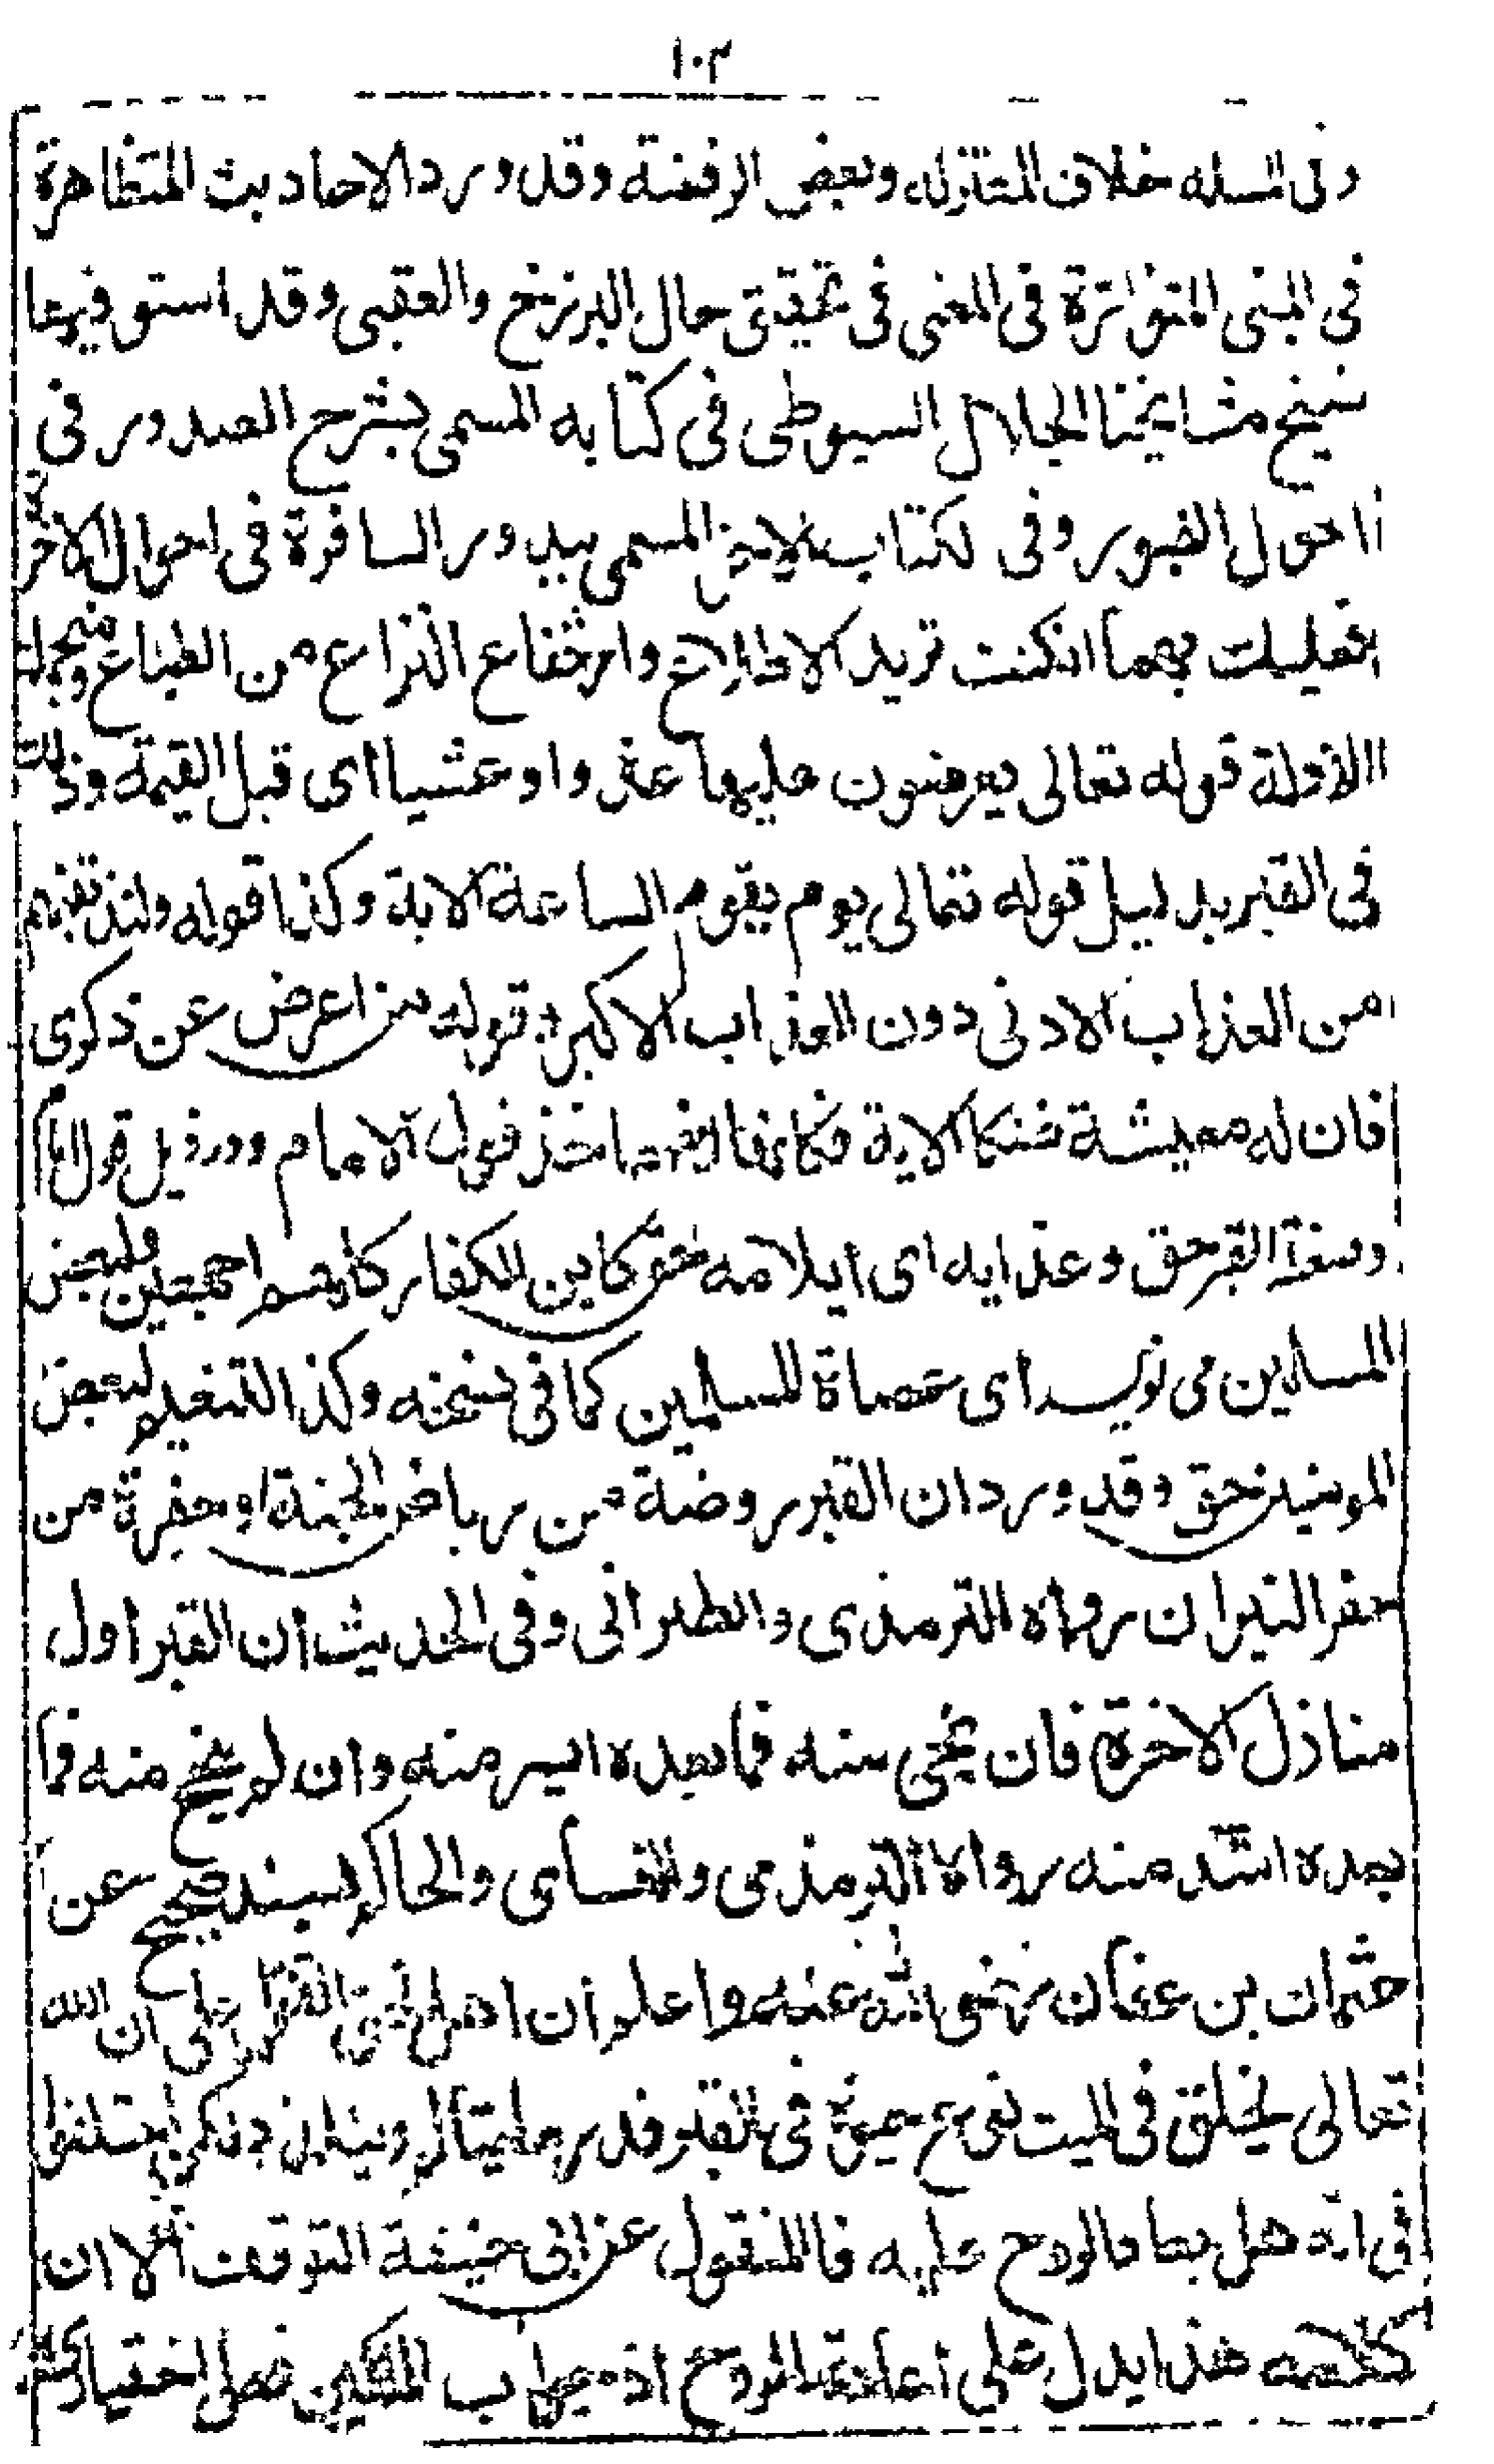 ١٠٣
وفى المسئله خلاف المعتزله وبعض الرفضة وقد ورد الاحاديث المتظاهرة
فى المبنى المتواترة فى المعنى فى تحقيق حال البرزخ والعقبى وقد استوفيها
شيخ مشايخنا الجلال السيوطى فى كتابه المسمى بشرح الصدور فى
احول القبور وفى لكتاب الاخر المسمى ببدور السافرة فى احوال الاخرة
فعليك بهما انكنت تريد الاطلاع وارتفاع النزاع من الطباع ومنجملة
الادلة قوله تعالى يعرضون عليها غدوا وعشيا اى قبل القيمة وذلك
فى القبر بدليل قوله تعالى يوم يقوم الساعة الاية وكذا قوله ولنذيقنهم
من العذاب الادنى دون العذاب الاكبر وقوله من اعرض عن ذكرى
فان له معيشة ضنكا الاية ماخذ قول الامام
وضغطة القبر حق وعذابه اى ايلامه حق كاين للكفار كلهم اجمعين ولبعض
المسلمين اى عصاة المسلمين كما فى نسخه وكذا التنعيم لبعض
المومنين حق وقد ورد ان القبر روضة من رياض الجنة او حفرة من
حفر النيران رواه الترمذى والطبرانى وفى الحديث ان القبر اول
منازل الاخرة فان نجى منه فما بعده ايسر منه وان لم ينج منه فما
بعده اشد منه رواه الترمذى والنسائى والحاكم بسند صحيح عن
عثمان بن عفان رضى الله عنه واعلم ان اهل الحق اتفقوا على ان الله
تعالى يخلق فى الميت نوع حيوة فى القبر قدر ما يتالم ويتلذذ ولكن اختلفوا
فى انه هل يعاد الروح عليه فالمنقول عن ابى حنيفة التوقف الا ان
كلامه هذا يدل على اعادة الروح اذ جواب الملكين فعل اختيارى